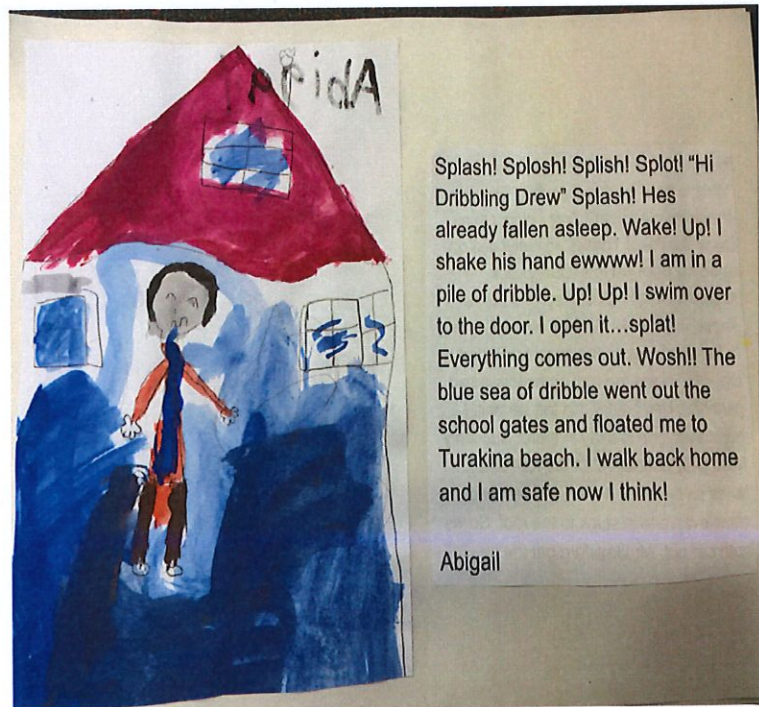 Splash! Splosh! Splish! Splot! “Hi
Dribbling Drew” Splash! Hes
already fallen asleep. Wake! Up! I
shake his hand ewwww! I am in a
pile of dribble. Up! Up! I swim over
to the door. I open it...splat!
Everything comes out. Wosh!! The
blue sea of dribble went out the
school gates and floated me to
Turakina beach. I walk back home
and I am safe now I think!
Abigail